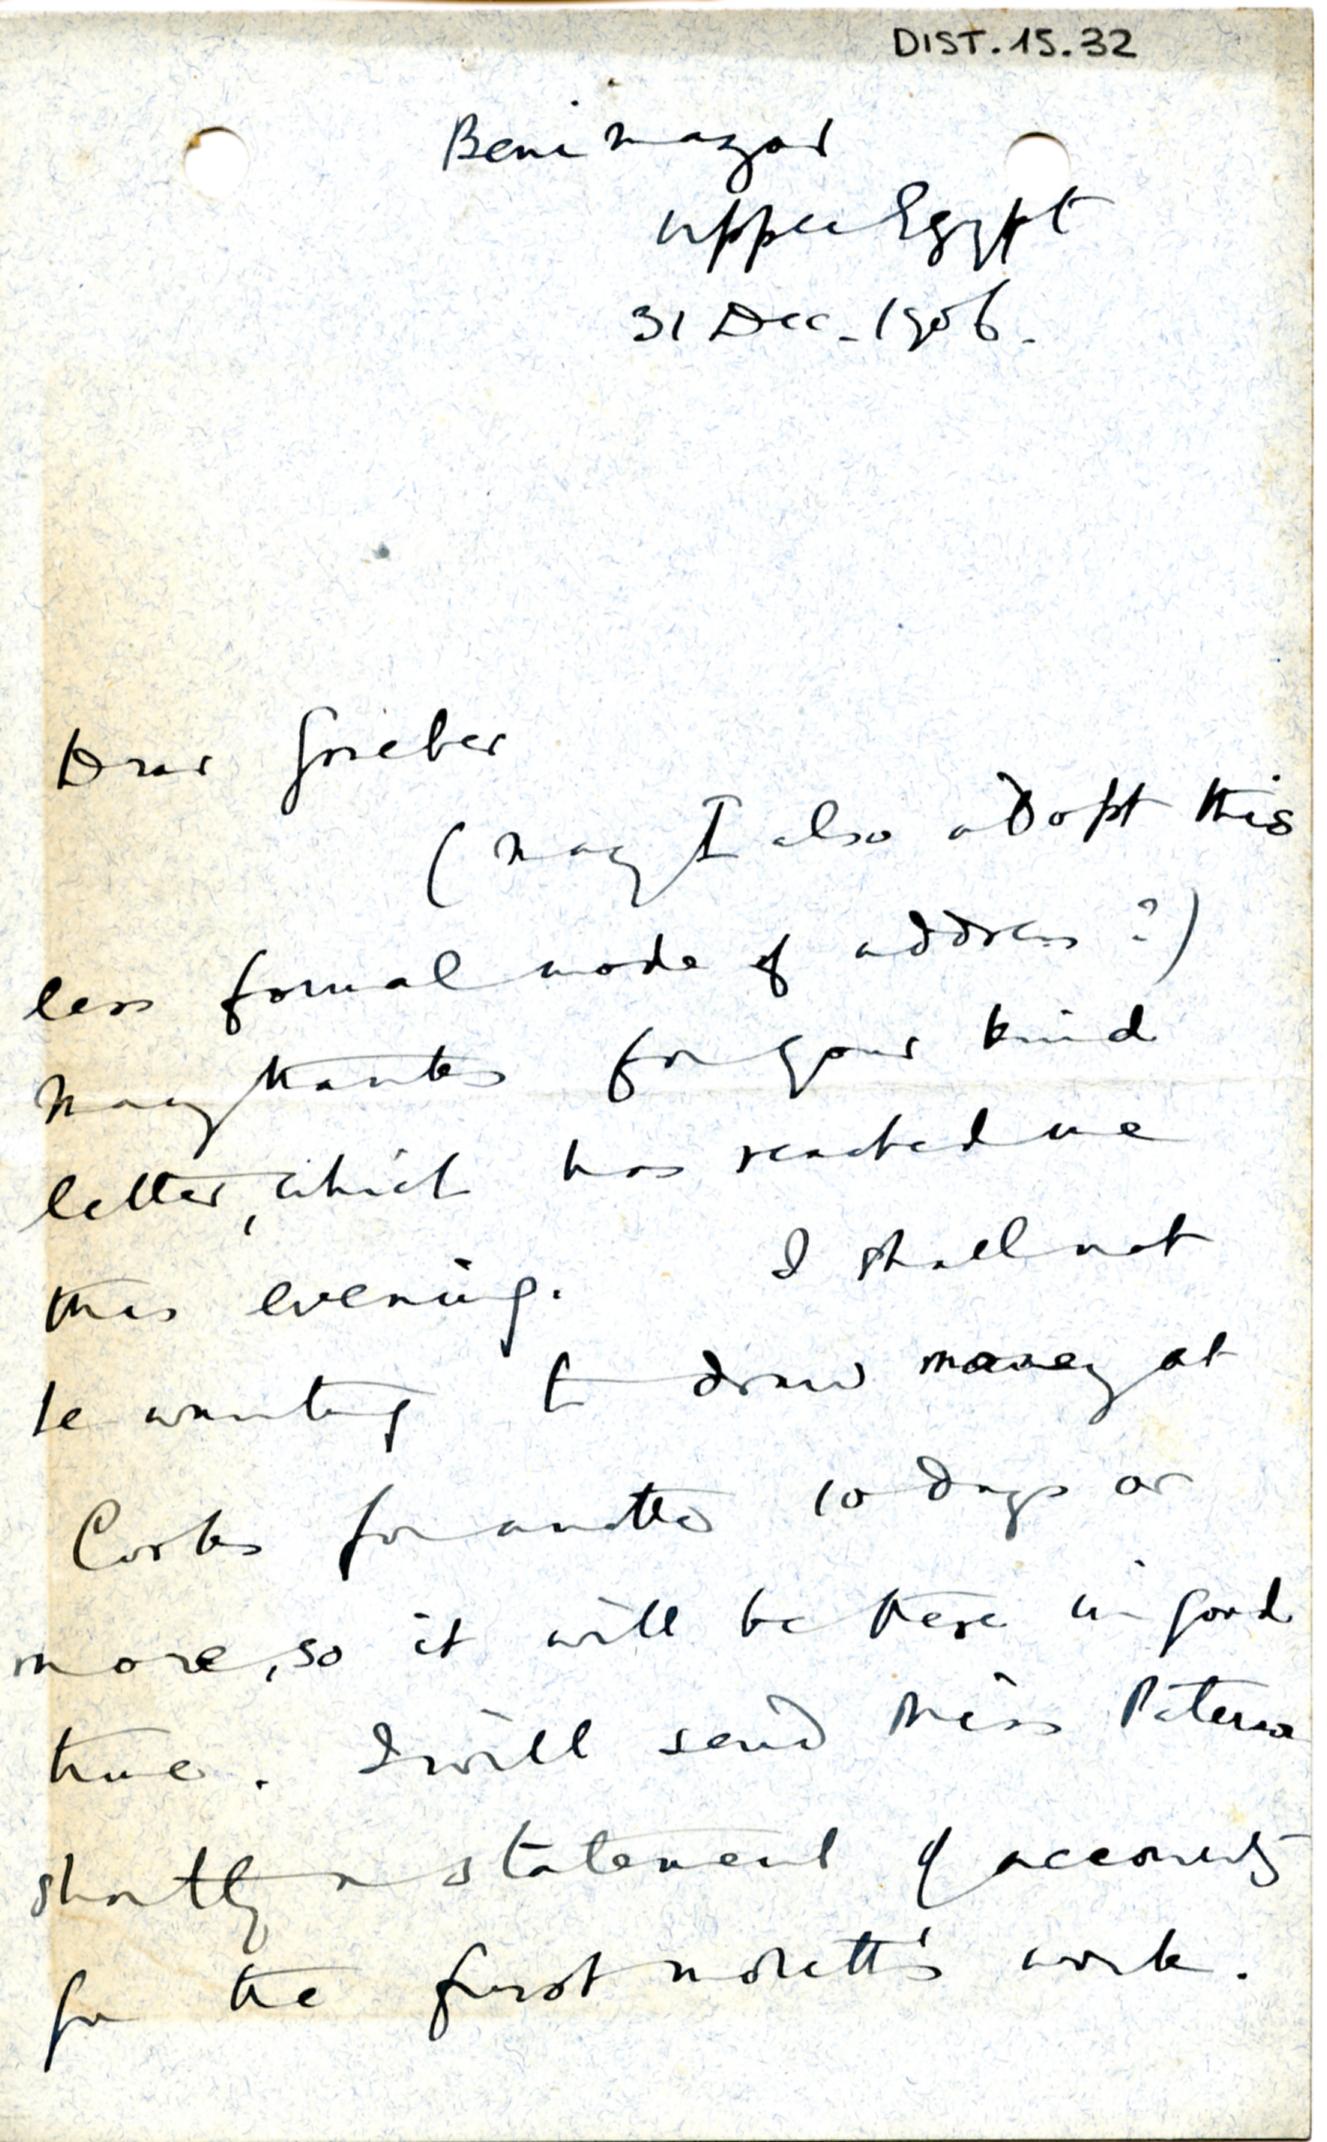 DIST.15.32
Beni Mazar
Upper Egypt
31 Dec. 1906.
Dear Grueber
(May I also adopt this
less formal mode of address?)
Many thanks for your kind
letter, which has reached me
this evening. I shall not
be wanting to draw money at
Cooks for another 10 days or
more, so it will be there in good
time. I will send Miss Paterson
shortly a statement of accounts
for the first month's work.